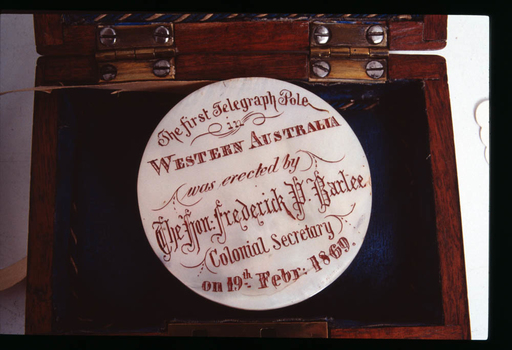 The first Telegraph Pole
in
WESTERN AUSTRALIA
was erected by
The Hon: Frederick P. Barlee
Colonial Secretary
on 19th. Febr: 1869.